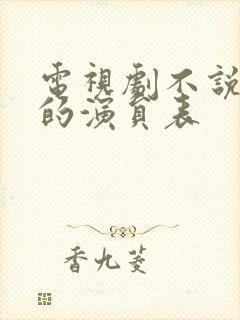 電視劇不說
的演員表
香九菱